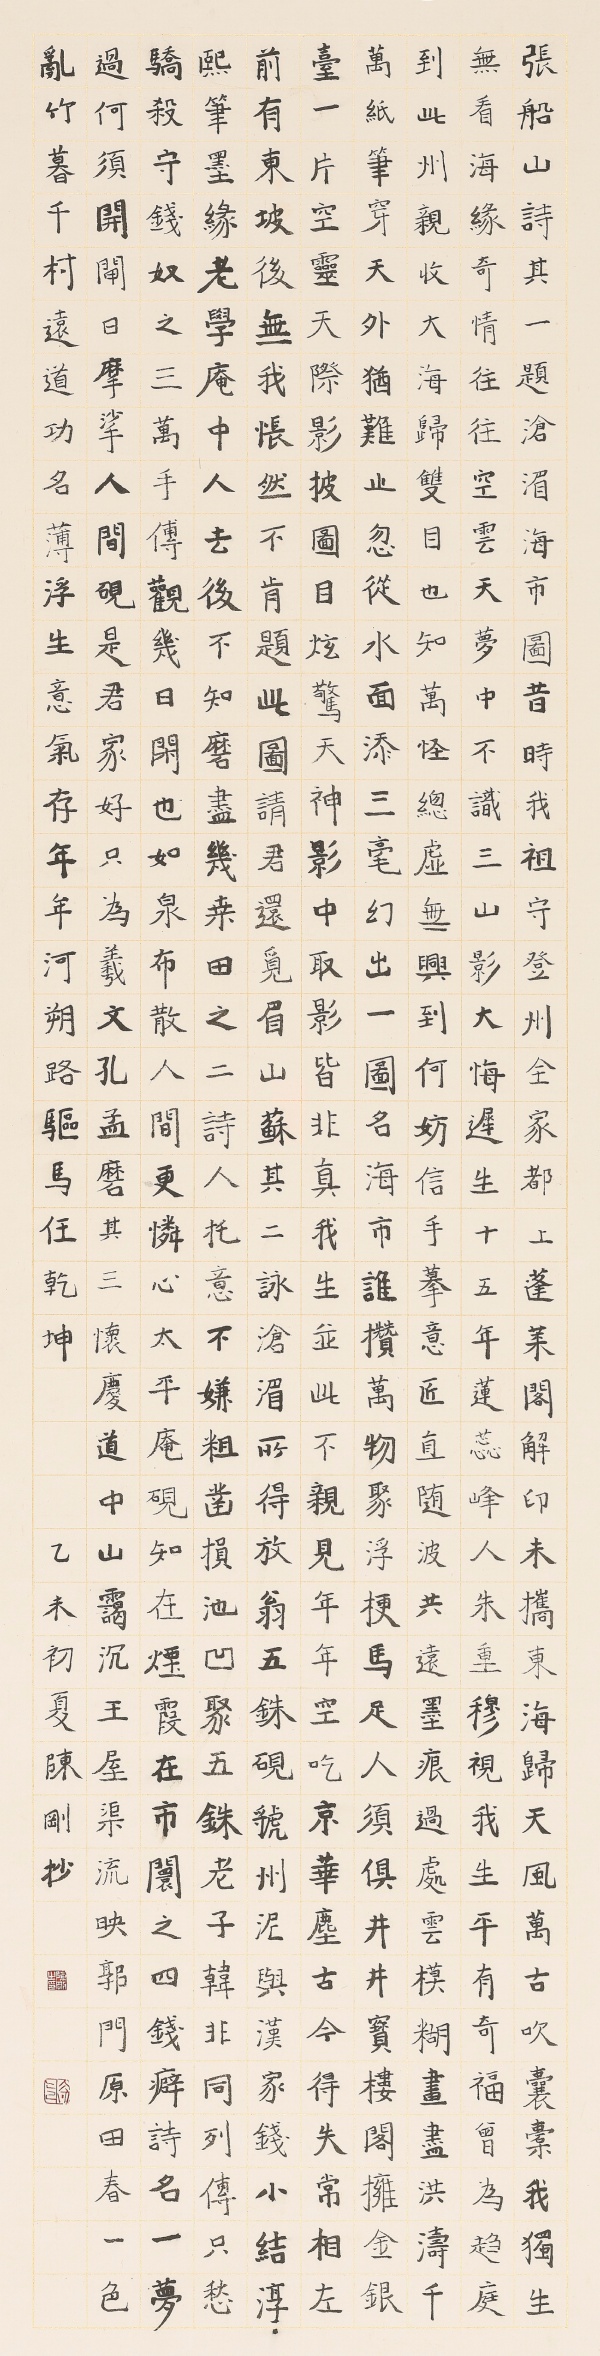 張船山詩其一題滄湄海市圖昔時我祖守登州全家都上蓬萊閣解印未攜東海歸天風萬古吹囊橐我獨生
無看海緣奇情往往空雲天夢中不識三山影大悔遲生十五年蓮蕊峰人朱重穆視我生平有奇福曾為趨庭
到此州親收大海歸雙目也知萬怪總虛無興到何妨信手摹意匠直隨波共遠墨痕過處雲模糊畫盡洪濤千
萬紙筆穿天外猶難止忽從水面添三毫幻出一圖名海市誰攢萬物聚浮梗馬足人須俱井井寶樓閣擁金銀
臺一片空靈天際影披圖目炫驚天神影中取影皆非真我生並此不親見年年空吃京華塵古今得失常相左
前有東坡後無我悵然不肯題此圖請君還覓眉山蘇其二詠滄湄所得放翁五銖硯虢州泥與漢家錢小結淳
熙筆墨緣老學庵中人去後不知磨盡幾桑田之二詩人托意不嫌粗凿損池凹聚五銖老子韓非同列傳只愁
驕殺守錢奴之三萬手傳觀幾日閑也如泉布散人間更憐心太平庵硯知在煙霞在市闤之四錢癖詩名一夢
過何須開閘日摩挲人間硯是君家好只為羲文孔孟磨其三懷慶道中山靄沉王屋渠流映郭門原田春一色
亂竹暮千村遠道功名薄浮生意氣存年年河朔路驅馬任乾坤
乙未初夏陳剛抄